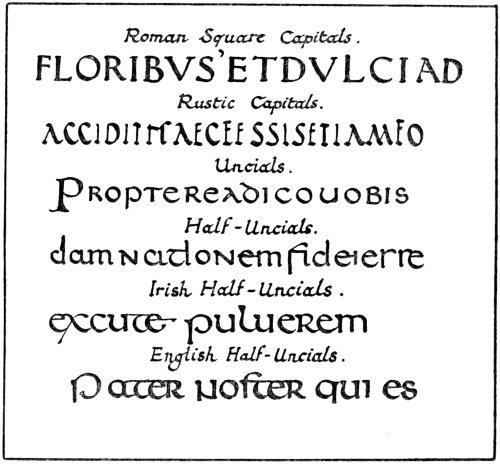 Roman Square Capitals.
FLORIBVS'ETDVLCIAD
Rustic Capitals.
ACCIDITHAECFESSISETIAMFO
Uncials.
PROPTEREADICOUOBIS
Half-Uncials.
damNatioNemfideierre
Irish Half-Uncials.
excute pulueRem
English Half-Uncials.
PateR NosteR qui es